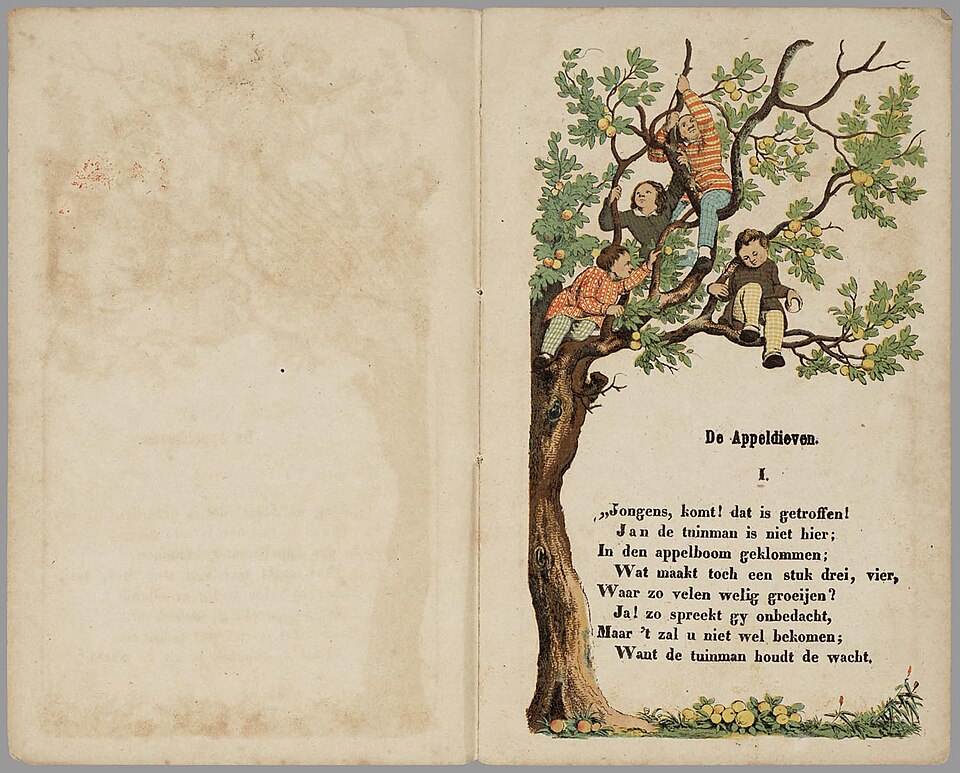 De Appeldieven.
I.
„Jongens, komt! dat is getroffen!
Jan de tuinman is niet hier;
In den appelboom geklommen;
Wat maakt toch een stuk drei, vier,
Waar zo velen welig groeijen?
Ja! zo spreekt gy onbedacht,
Maar 't zal u niet wel bekomen;
Want de tuinman houdt de wacht.